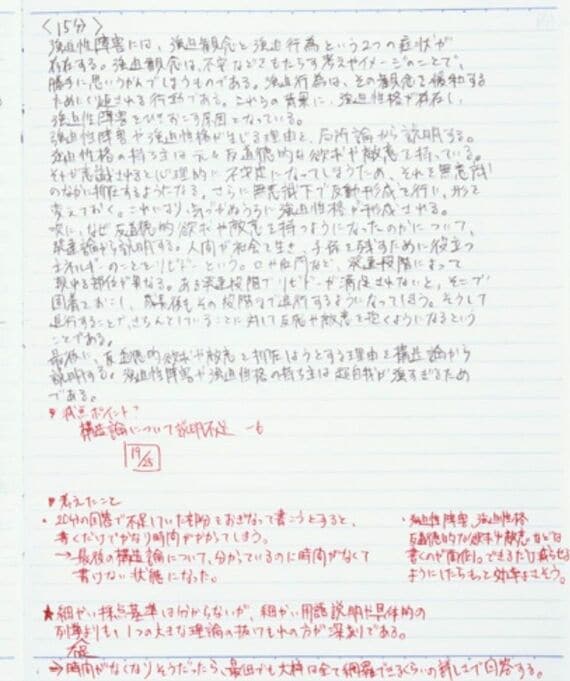 〈15分〉
強迫性障害には、強迫観念と強迫行為という2つの症状が
存在する。強迫観念は、不安などをもたらす考えやイメージのことで、
勝手に思いうかんでしまうものである。強迫行為は、その観念を緩和する
ためにくり返される行動である。これらの背景に、強迫性格が存在し、
強迫性障害をひきおこす原因となっている。
強迫性障害や強迫性格が生じる理由を、局所論から説明する。
強迫性格の持ち主は元々反道徳的な欲求や敵意を持っている。
それが意識されると心理的に不安定になってしまうため、それを無意識
のなかに抑圧するようになる。さらに無意識下で反動形成を行い、形を
変えておく。これにより、気づかぬうちに強迫性格が形成される。
次に、なぜ反道徳的欲求や敵意を持つようになったのかについて、
発達論から説明する。人間が社会で生き、子孫を残すために役立つ
エネルギーのことをリビドーという。口や肛門など、発達段階によって
現れる部位が異なる。ある発達段階でリビドーが満足されないと、そこで
固着をおこし、成長後もその段階まで退行するようになってしまう。そうして
退行することで、きちんとしていることに対して反応や敵意を抱くようになるという
ことである。
最後に、反道徳的欲求や敵意を抑圧しようとする理由を構造論から
説明する。強迫性障害や強迫性格の持ち主は超自我が強すぎるため
である。
減点ポイント?
構造論について説明不足 -6
19/25
考えたこと
・20分の回答で不足していた部分をおぎなって書こうとすると、
書くだけでかなり時間がかかってしまう。
→最後の構造論について、分かっているのに時間がなくて
書けない状態になった。
・強迫性障害、強迫性格
反道徳的な欲求や敵意などは
書くのが面倒。できるだけ減らせる
ようにしたらもっと効率よさそう。
★細かい採点基準は分からないが、細かい用語説明や具体的の
列挙よりも、1つの大きな理論の抜けもれの方が深刻である。
→時間がなくなりそうだったら、最低でも大枠は全て網羅できるくらいの詳しさで回答する。